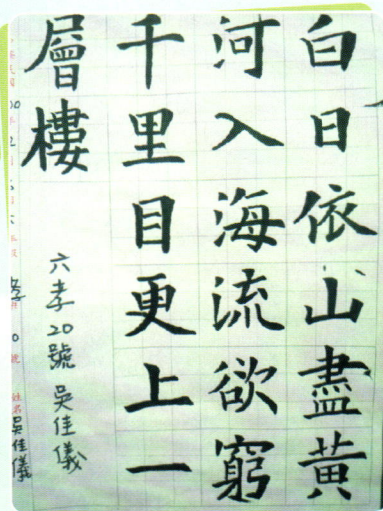 白日依山盡黃
河入海流欲窮
千里目更上一
層樓
六孝20號 吳佳儀
吳佳儀